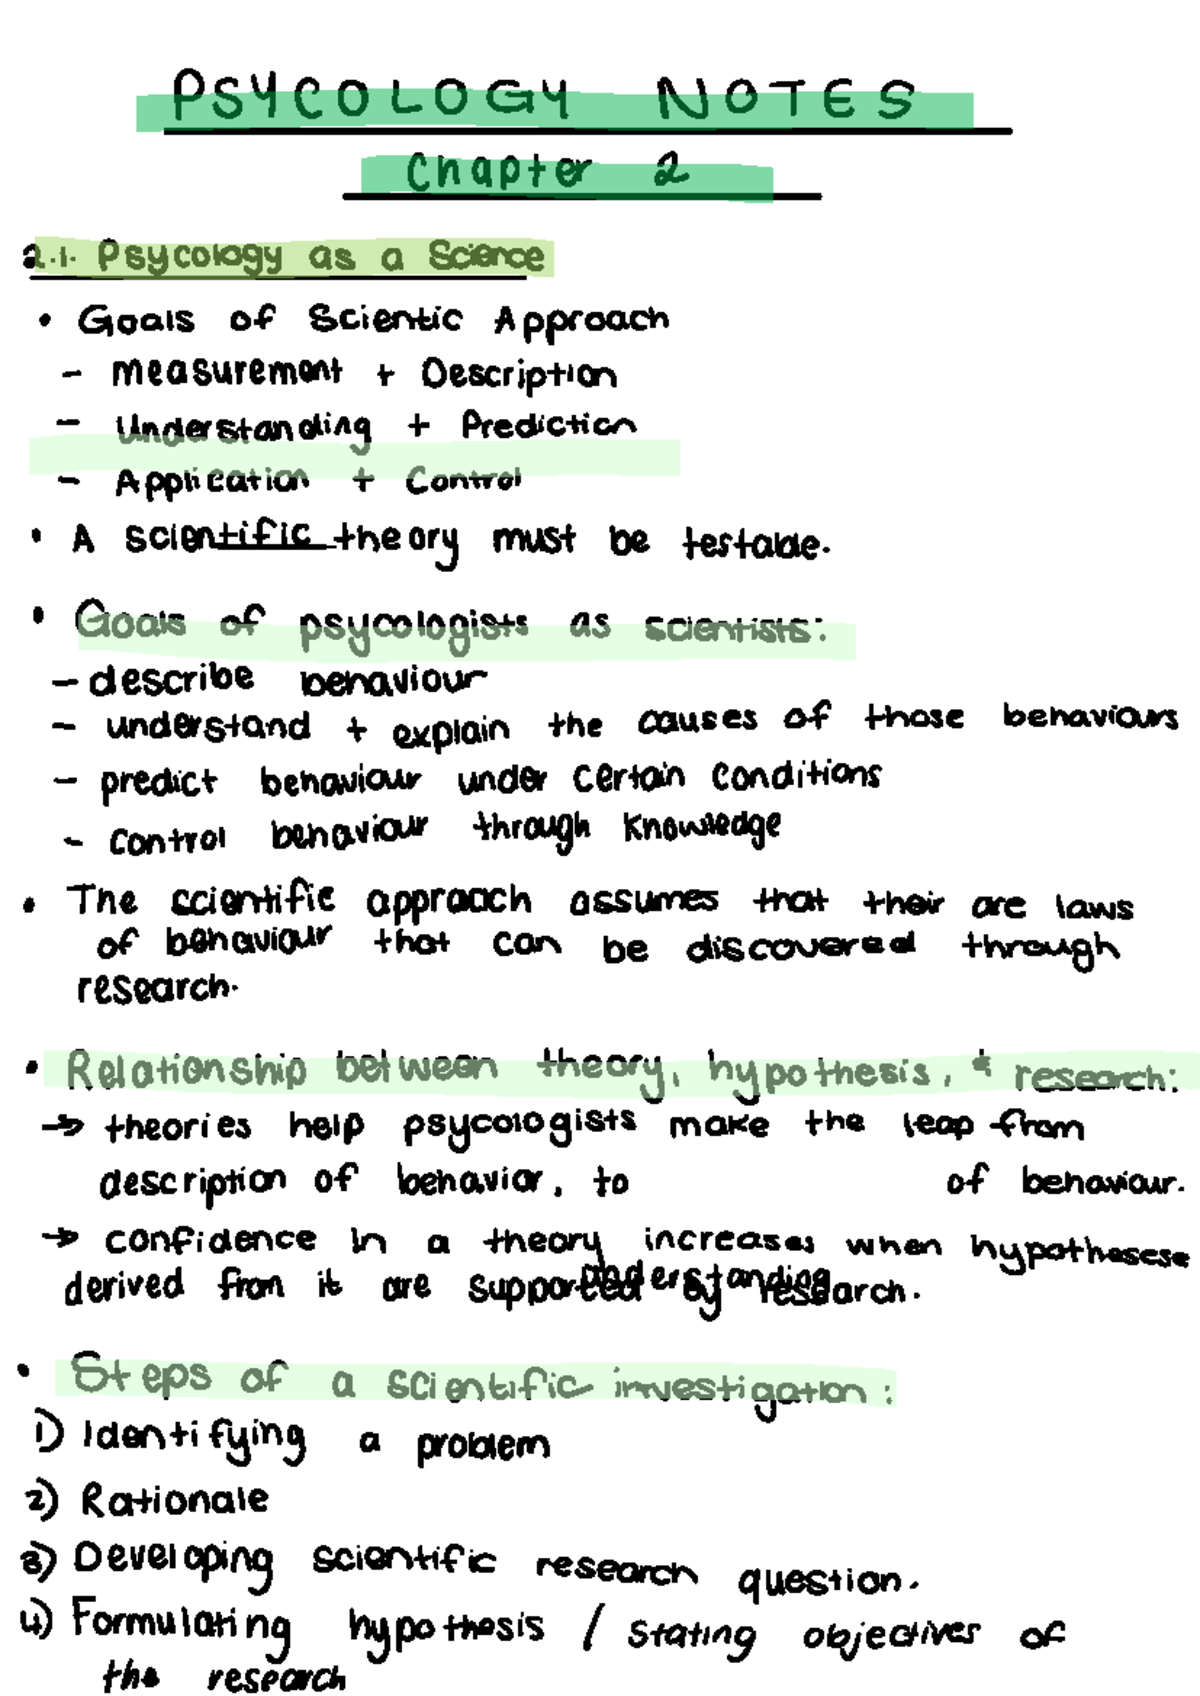 PSYCOLOGY NOTES
Chapter 2
2.1. Psycology as a Science
• Goals of Scientic Approach
- measurement + Description
- Understanding + Prediction
- Application + Control
• A scientific theory must be testable.
• Goals of psycologists as scientists:
- describe behaviour
- understand + explain the causes of those behaviours
- predict behaviour under certain conditions
- control behaviour through knowledge
• The scientific approach assumes that their are laws
of behaviour that can be discovered through
research.
• Relationship between theory, hypothesis, & research:
→ theories help psycologists make the leap from
description of behavior, to of behaviour.
→ confidence in a theory increases when hypothesese
understanding
derived from it are supported by research.
• Steps of a scientific investigation:
1) Identifying a problem
2) Rationale
3) Developing scientific research question.
4) Formulating hypothesis / stating objectives of
the research